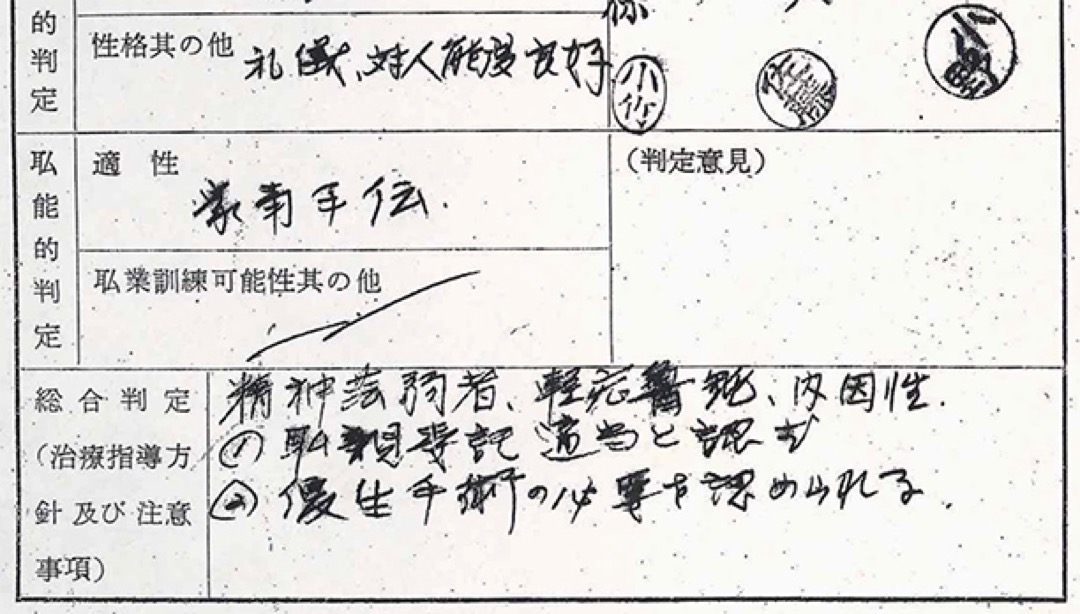 的判定
性格其の他
礼儀、対人態度良好
小竹
職能的判定
適性
家事手伝.
(判定意見)
職業訓練可能性其の他
総合判定
(治療指導方
針及び注意
事項)
精神薄弱者、軽症魯鈍、内因性.
(1) 職親委託適当と認む
(2) 優生手術の必要を認められる.